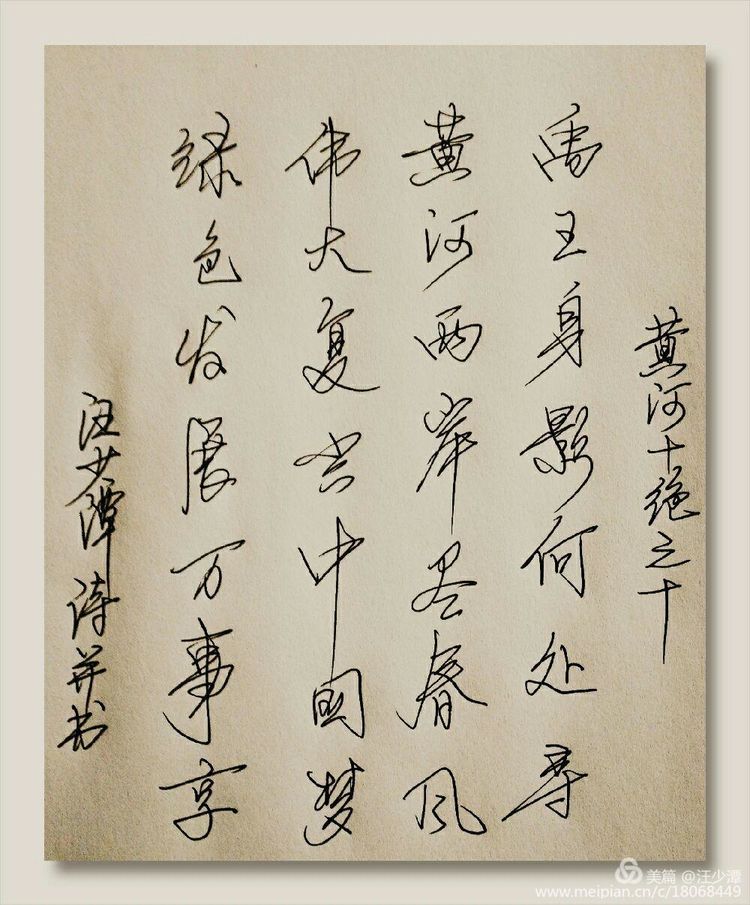 黄河十绝之十
禹王身影何处寻
黄河两岸尽春风
伟大复兴中国梦
绿色发展万事享
汪少潭诗并书
美篇 @汪少潭
www.meipian.cn/c/18068449